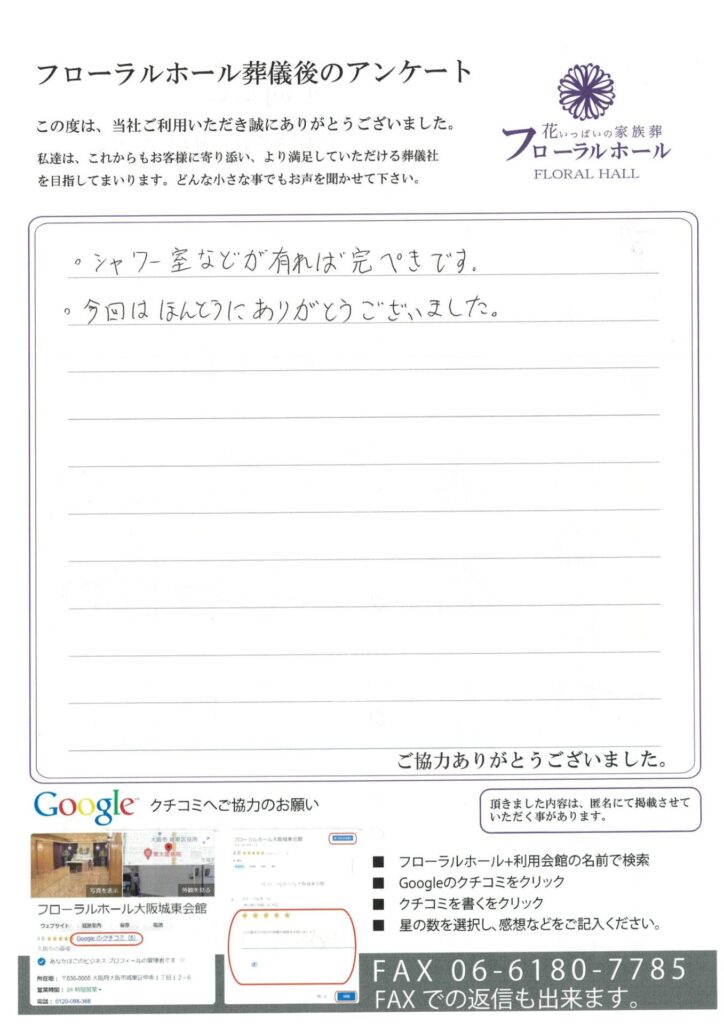 フローラルホール葬儀後のアンケート
この度は、当社ご利用いただき誠にありがとうございました。
私達は、これからもお客様に寄り添い、より満足していただける葬儀社
を目指してまいります。どんな小さな事でもお声を聞かせて下さい。
花いっぱいの家族葬
フローラルホール
FLORAL HALL
。シャワー室などが有れば完ぺきです。
。今回はほんとうにありがとうございました。
ご協力ありがとうございました。
Google クチコミへご協力のお願い
頂きました内容は、匿名にて掲載させて
いただく事があります。
写真を表示
外観を見る
フローラルホール大阪城東会館
ウェブサイト
Google のクチコミ（6）
あなたはこのビジネス プロフィールの管理者です
営業時間： 24 時間営業
電話： 0120-098-368
フローラルホール大阪城東会館
■ フローラルホール+利用会館の名前で検索
■ Googleのクチコミをクリック
■ クチコミを書くをクリック
■ 星の数を選択し、感想などをご記入ください。
FAX 06-6180-7785
FAXでの返信も出来ます。